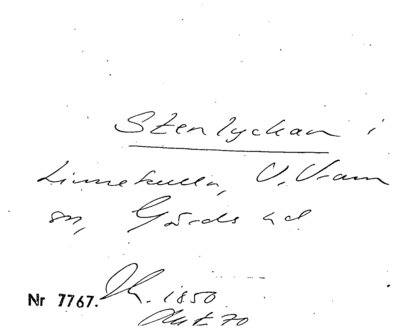 Stenlyckan i
Linnekulla, V. Vram
sn, Gärds hd
Nr 7767. 1850